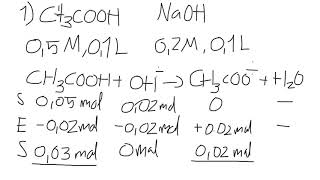 1) CH3COOH NaOH
0,5 M, 0,1 L 0,2 M, 0,1 L
CH3COOH + OH⁻ → CH3COO⁻ + H2O
S 0,05 mol 0,02 mol 0 —
E -0,02 mol -0,02 mol +0,02 mol —
S 0,03 mol 0 mol 0,02 mol